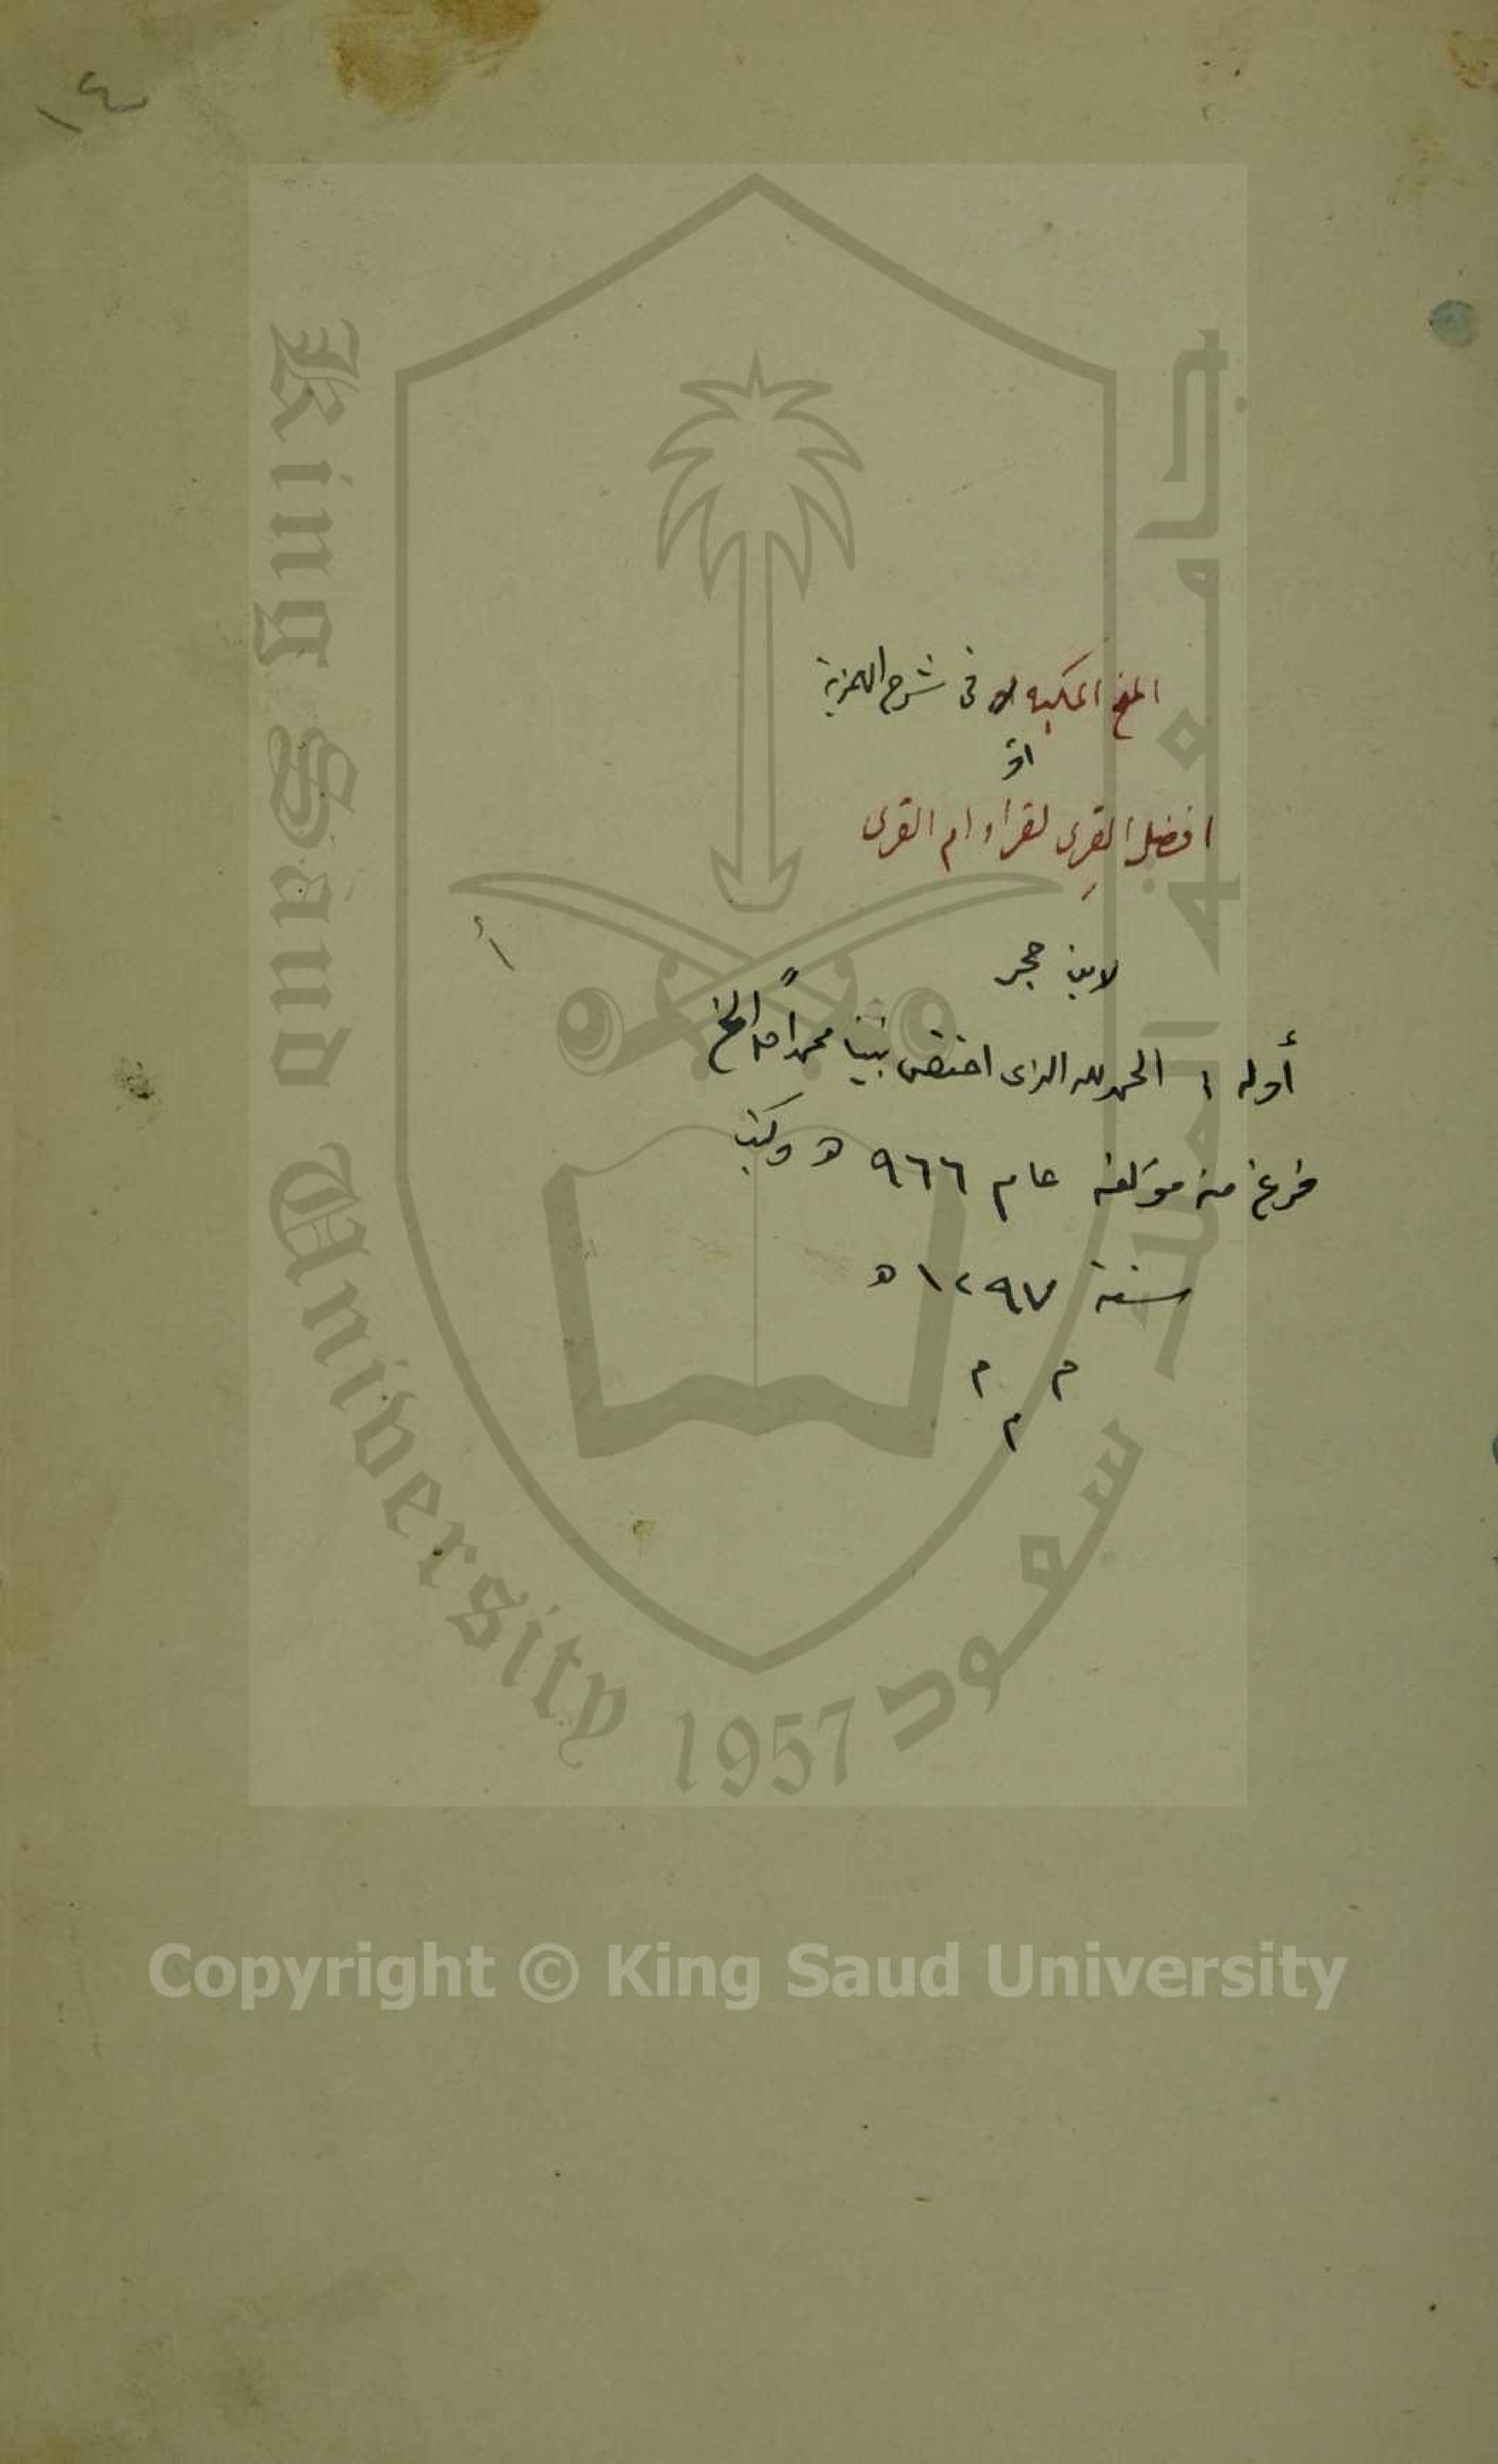 ١٤
المنح المكيه فى شرح الهمزية
أو
افضل القرى لقراء ام القرى
لابن حجر
أ
أوله : الحمد لله الذى اختص نبينا محمداً الخ
فرغ من مؤلفه عام ٩٦٦ ه وكتب
سنة ١٢٩٧ ه
م م
م
King Saud University 1957
جامعة الملك سعود
Copyright © King Saud University